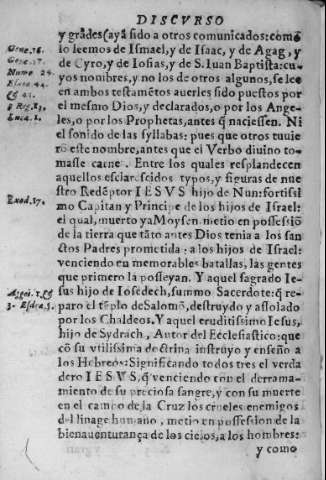 DISCVRSO
y grãdes (ayã sido a otros comunicados: como
lo leemos de Ismael, y de Isaac, y de Agag, y
de Cyro, y de Iosias, y de S. Iuan Baptista: cu-
yos nombres, y no los de otros algunos, se lee
en ambos testamẽtos auerles sido puestos por
el mesmo Dios, y declarados, o por los Ange-
les, o por los Prophetas, antes q̃ naciessen. Ni
el sonido de las syllabas: pues que otros tuuie
rõ este nombre, antes que el Verbo diuino to-
masse carne. Entre los quales resplandecen
aquellos esclarescidos typos, y figuras de nue
stro Redẽptor IESVS hijo de Nun: fortissi
mo Capitan y Principe de los hijos de Israel:
el qual, muerto ya Moysen metio en possessiõ
de la tierra que tãto antes Dios tenia a los san
ctos Padres prometida: a los hijos de Israel:
venciendo en memorables batallas, las gentes
que primero la posseyan. Y aquel sagrado Ie-
sus hijo de Iosedech, summo Sacerdote: q̃ re-
paro el tẽplo de Salomõ, destruydo y assolado
por los Chaldeos. Y aquel eruditissimo Iesus,
hijo de Sydrach, Autor del Ecclesiastico: que
cõ su vtilissima doctrina instruyo y enseño a
los Hebreos: Significando todos tres el verda
dero IESVS, q̃ venciendo con el derrama-
miento de su preciosa sangre, y con su muerte
en el campo de la Cruz los crueles enemigos
del linage humano, metio en possession de la
bienauenturança de los cielos, a los hombres:
y como
Gene. 16.
Gene. 17.
Esaie. 44.
Luca. 1.
Exod. 17.
3. Esdra. 5.